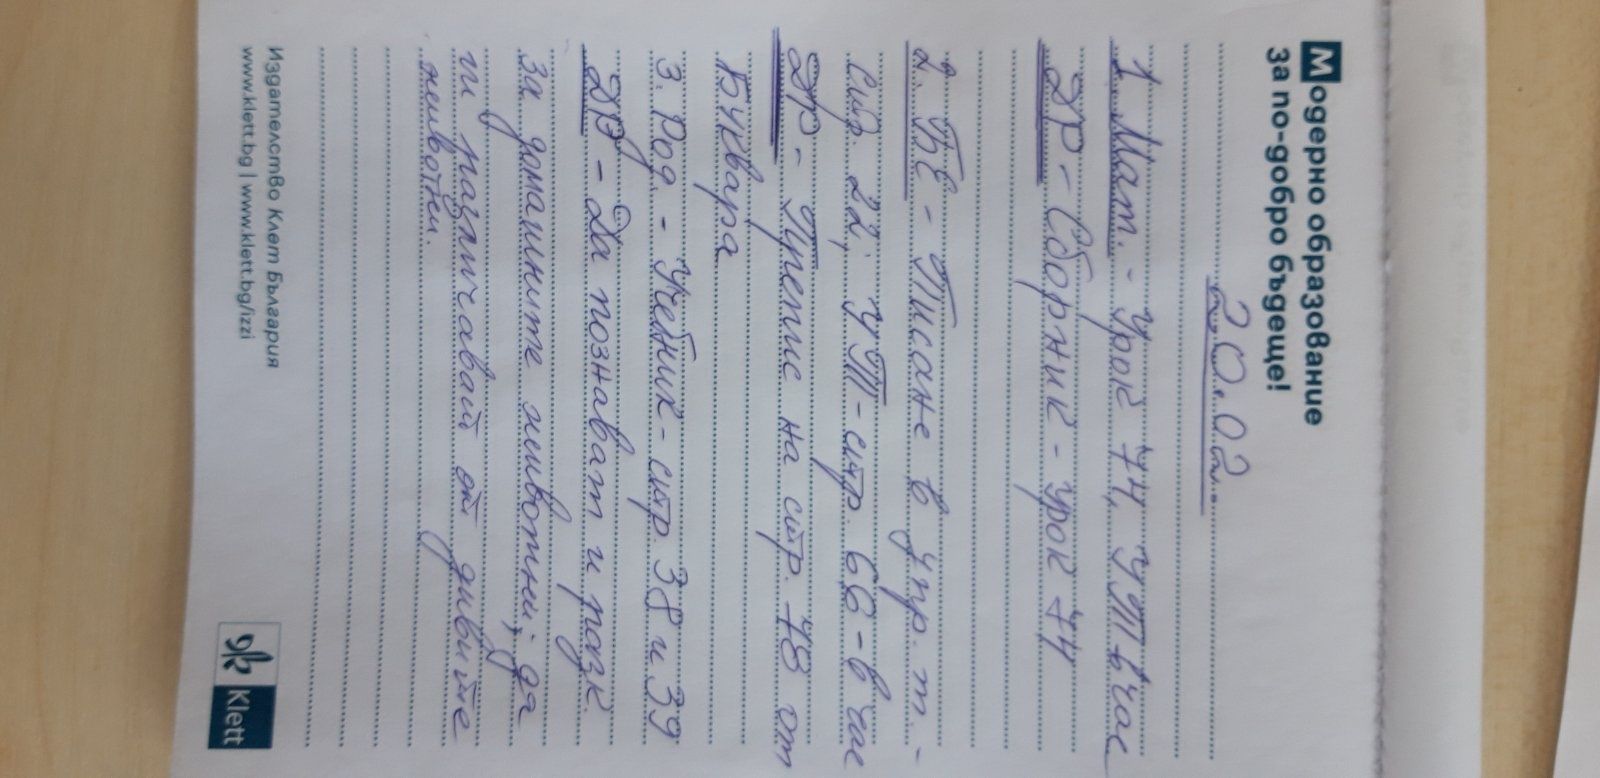 Модерно образование
за по-добро бъдеще!
20.02.
1. Мат. - Урок 74, УТ в час
ДР - Сборник - урок 74
2. БЕ - Писане в упр. т. -
стр. 22; УТ - стр. 66 - в час
ДР - Четене на стр. 78 от
Буквара
3. Род. - Учебник - стр. 38 и 39
ДР - Да познават и разк.
за домашните животни; да
ги различават от дивите
животни.
Издателство Клет България
www.klett.bg | www.klett.bg/izzi
Klett